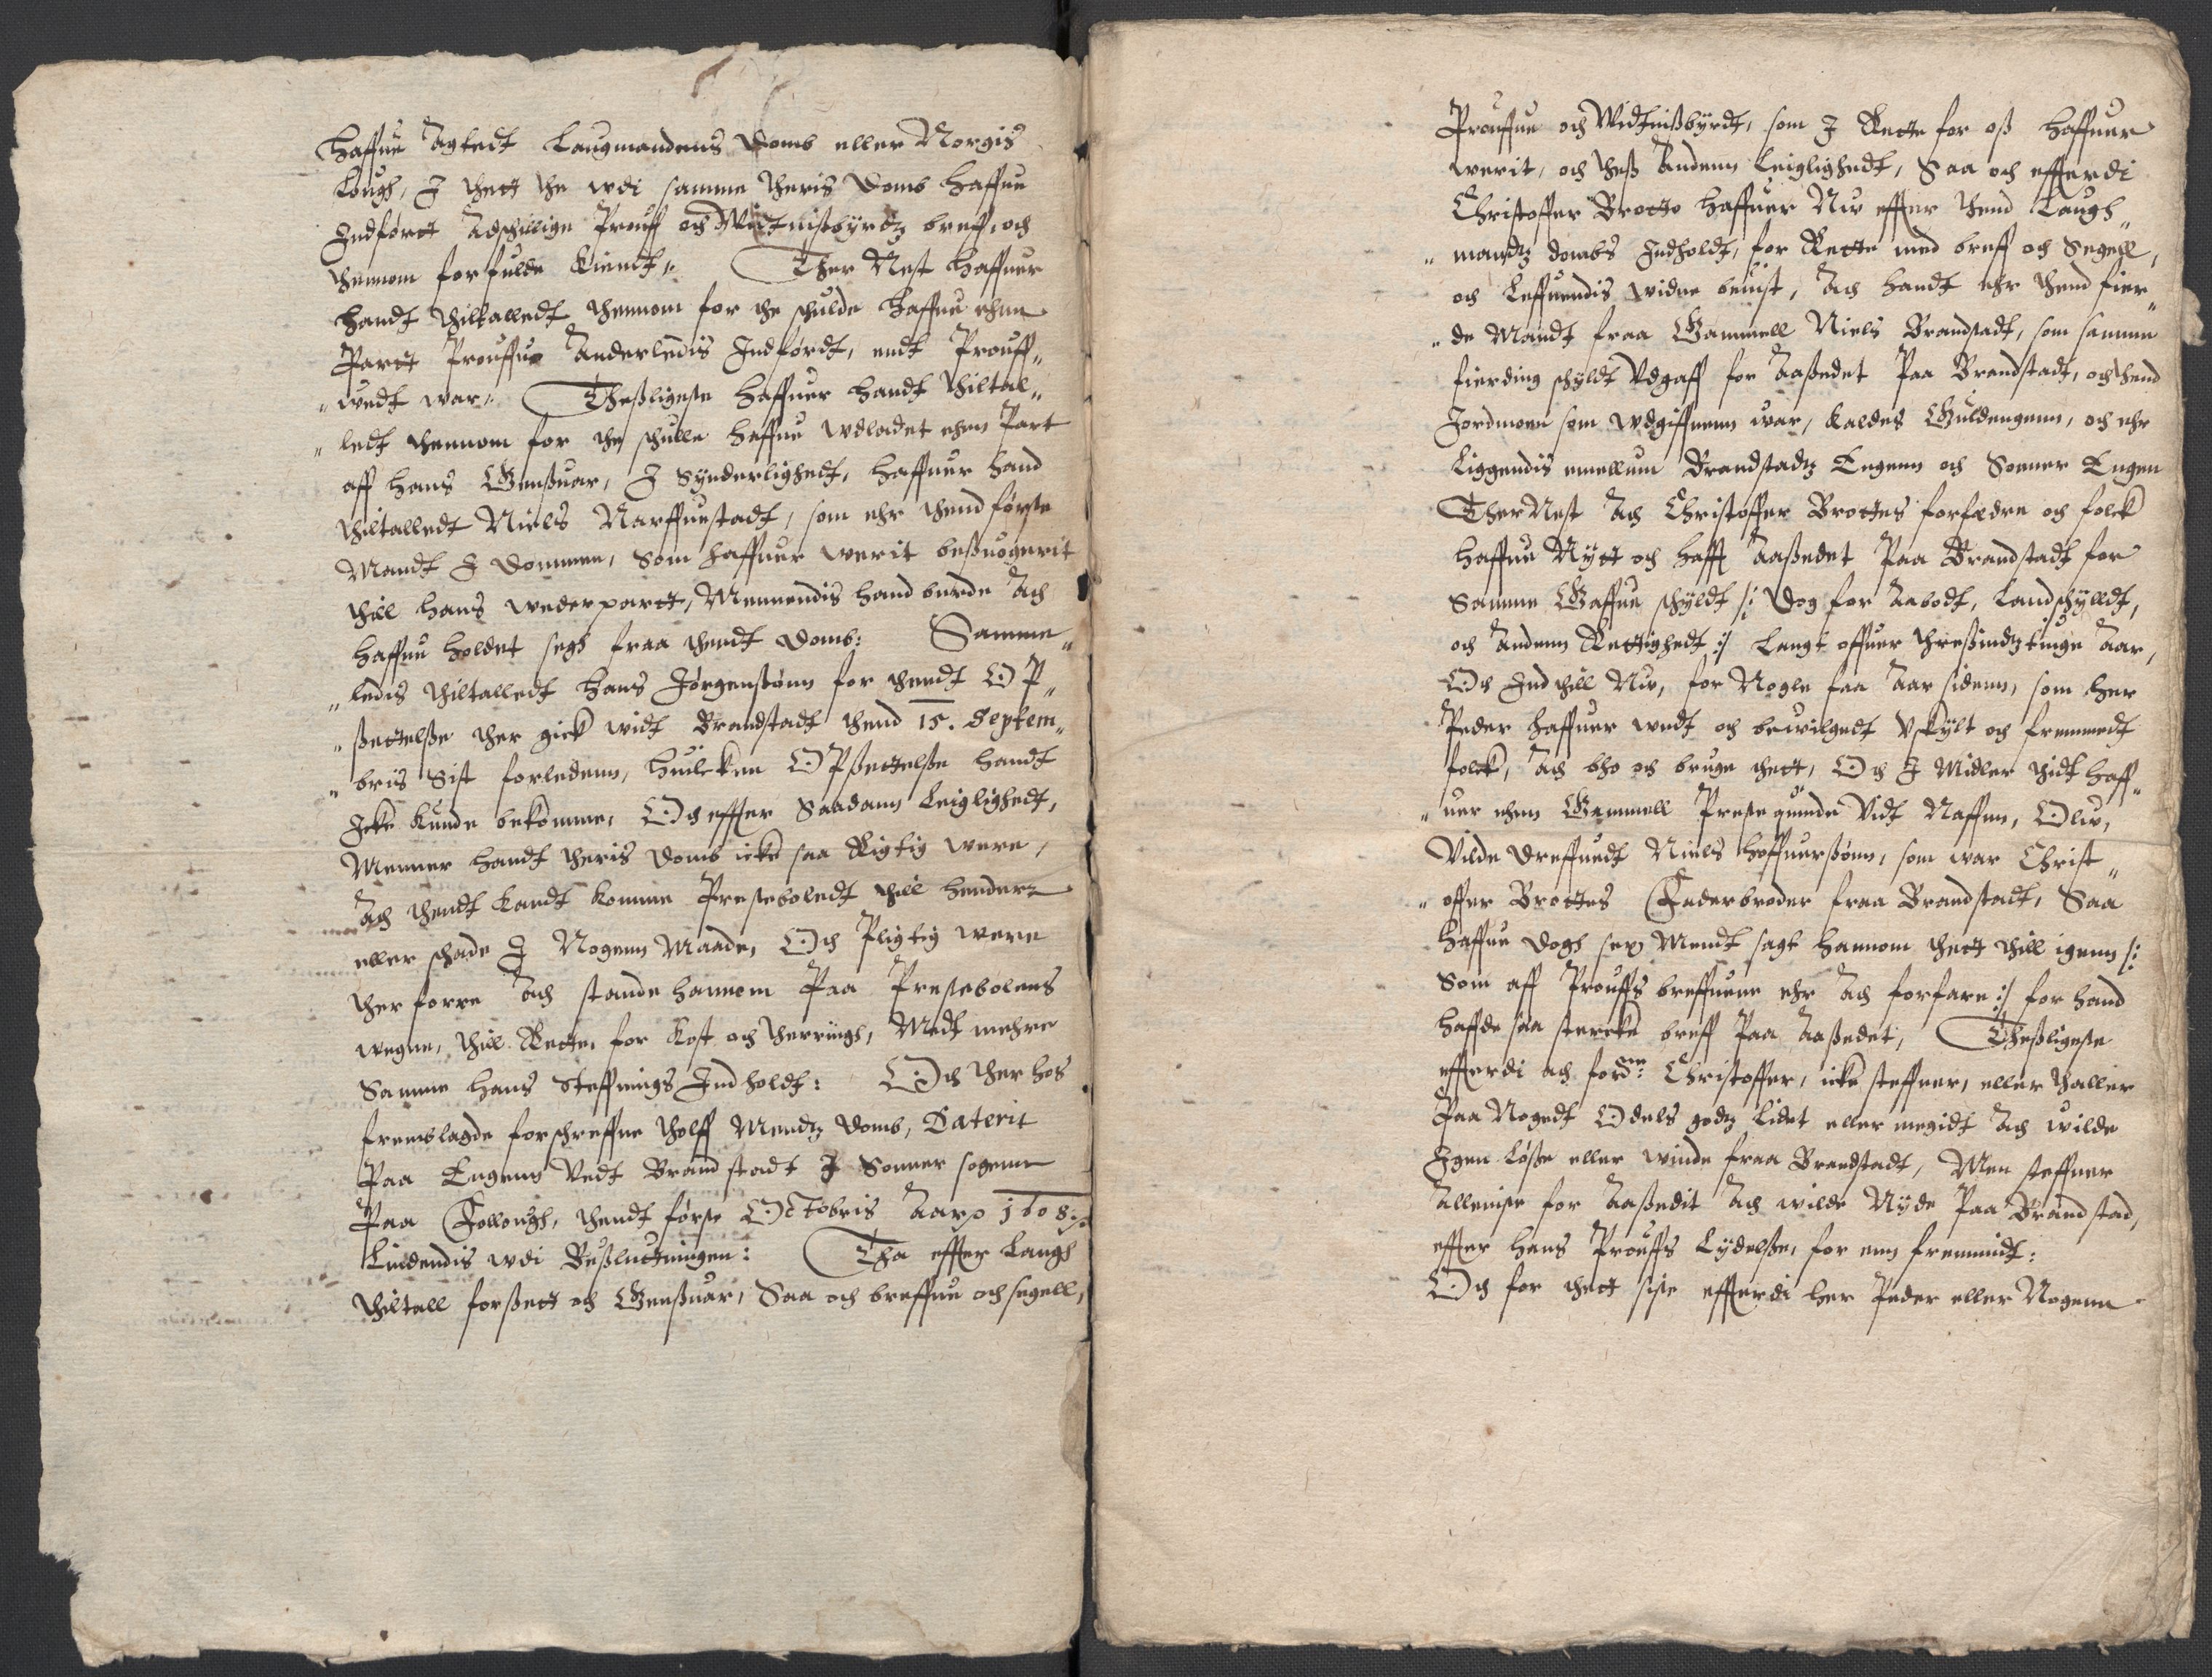 haffue Agtedt Laugmandens Domb eller Norgis
Lough, J thett the wdi samme theris Domb haffue
Indførtt Adschillige Prouff och Widtnissbyrdtz breff, och
thennom forfulde Kiendt,, Ther Nest haffuer
handt thiltalledt thennom for the schulde haffue ehnn
Partt Prouffue Anderledis Indførdt, endt Prouff,,
,, wedt war,, Thessligeste haffuer handt thiltal,,
,, ledt thennom for the schulle haffue wdladet ehnn Part
aff hans Genssuar, J Synderlighedt, haffuer hand
thiltalledt Niels Narffuestadt, som ehr thend første
Mandt J Dommen, Som haffuer werit bessuogerit
thill hans wederpartt, Mennendis hand burde Ath
haffue holdet segh fraa thendt Domb: Samme,,
,, ledis thiltalledt hans Jørgenssønn for thendt OP,,
,, ssettelsse ther gick widt Brandstadt thend 15. Septem,,
,, bris Sist forledenn, huilcken OPssettelsse handt
Icke kunde bekomme, Och effter Saadann Leiglighedt,
Menner handt theris Domb icke saa Rigtig were,
Ath thendt kandt komme Presteboledt thill hender
eller schade J Nogenn Maade, Och Pligtig were
ther forre Ath stande hannom Paa Prestebolens
wegne, thill Rette, for Kost och therringh, Medt mehre
Samme hans Steffnings Indholdt: Och ther hos
fremblagde forschreffne tholff Mendtz Domb, Daterit
Paa Engenn Vedt Brandstadt J Sonner sogenn
Paa Follough, thendt første Octobris Aar 1608:
Liudendis wdi Besslutningen: Tha effter Laugh
thiltall forssett och Genssuar, Saa och breffue och segell,
Prouffue och Widtnissbyrdt, som J Rette for oss haffuer
werit, och thess Andenn Leiglighedt, Saa och effterdi
Christoffer Brotto haffuer Nu effter thend Laugh,,
,, mandtz dombs Indholdt, for Rette med breff och Segell,
och Leffuendis widne beuist, Ath handt ehr thend fier,,
,, de Mandt fraa Gammell Niels Brandstadt, som samme
fierding schyldt Vdgaff for Aassedet Paa Brandstadt, och thend
Jordmoen som wdgiffuenn war, kaldes Guldengenn, och ehr
Liggendis emellum Brandstadtz Engenn och Sonner Engen
Ther Nest Ath Christoffer Brottes forfædre och folck
haffue Nytt och hafft Aassedet Paa Brandstadt for
Samme Gaffue schyldt /: Dog for Aabodt, Landschylldt,
och Andenn Rettighedt :/ Langt offuer thressindtztinge Aar,
Och Ind thill Nu, for Nogle faa Aar sidenn, som her
Peder haffuer wedt och bewilgedt Vskylt och fremmedt
folck, Ath bho och bruge thett, Och J Midler thidt haff,,
,, uer ehnn Gammell Preste quinde Vidt Naffnn, Oliu,
Vilde dreffuedt Niels hoffuerssønn, som war Christ,,
,, offer Brottes Faderbroder fraa Brandstadt, Saa
haffue Dogh sex Mendt sagt hannom thett thill igenn /:
Som aff Prouffs breffuene ehr Ath forfare :/ for hand
haffde saa stercke breff Paa Aassedet, Thessligeste
effterdi ath fordne: Christoffer, icke steffner, eller thaller
Paa Nogedt Odels godtz Lidet eller megidt Ath wilde
Igen Løsse eller winde fraa Brandstadt, Men steffner
Alleniste for Aassedit Ath wilde Nyde Paa Brandstad,
effter hans Prouffs Lydelsse, for enn fremmidt:
Och for thett siste effterdi her Peder eller Nogenn